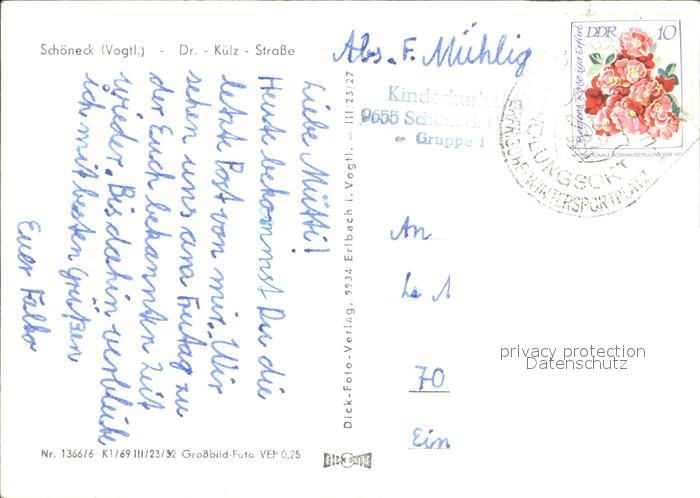 Schöneck (Vogtl.) - Dr. - Külz - Straße
Abs. F. Mühlig
Kinderkurheim
9655 Schöneck
- Gruppe 1
DDR 10
Rose aus Erfurt
INTERNATIONALE ROSENAUSSTELLUNG DDR 1972
WINTERSPORTPLATZ
Liebe Mutti!
Heute bekommst Du die
letzte Post von mir. Wir
sehen uns am Freitag zu
der Euch bekannten Zeit
wieder. Bis dahin verbleibe
ich mit besten Grüßen
Euer Falko
Dick-Foto-Verlag, 9934 Erlbach i. Vogtl. — III/23/27
An
70
Ein
privacy protection
Datenschutz
Nr. 1366/6 K1/69 III/23/32 Großbild-Foto VEP 0,25